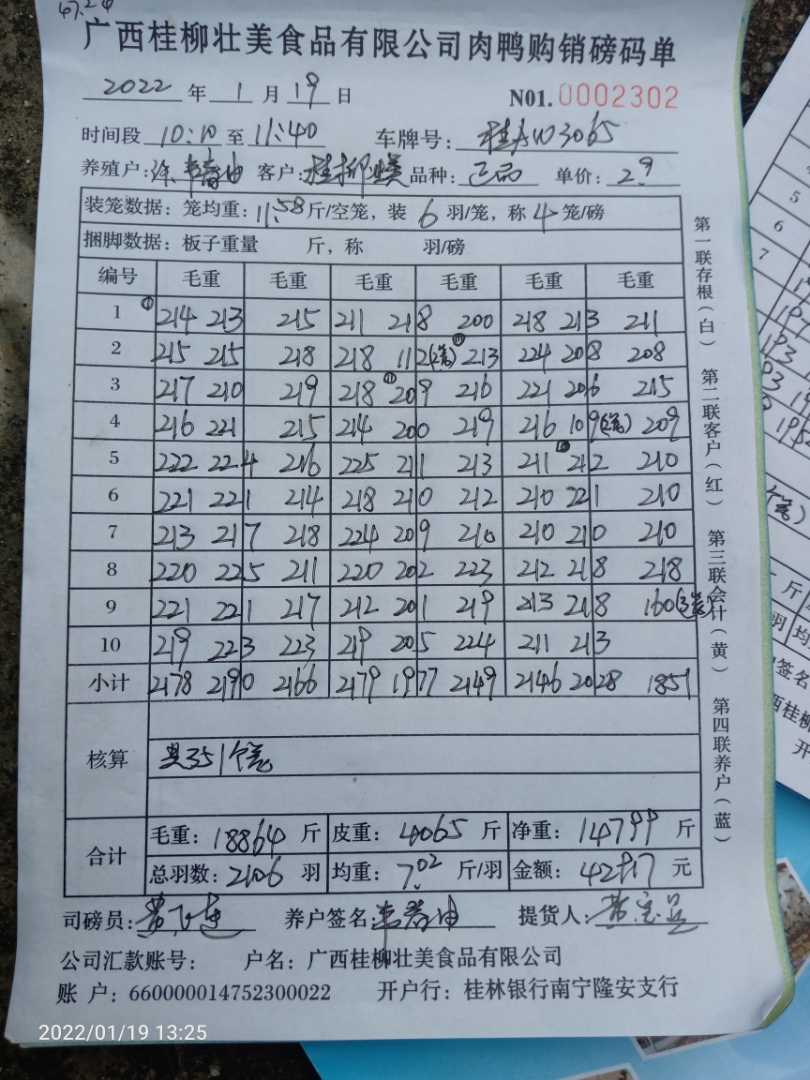 47.24
广西桂柳壮美食品有限公司肉鸭购销磅码单
2022 年 1 月 19 日 N01. 0002302
时间段 10:10 至 11:40 车牌号: 桂AW3065
养殖户: 客户: 桂柳 品种: 正品 单价: 2.9
装笼数据: 笼均重: 11.58 斤/空笼, 装 6 羽/笼, 称 4 笼/磅
捆脚数据: 板子重量 斤, 称 羽/磅
编号 毛重 毛重 毛重 毛重 毛重 毛重
1 214 213 215 211 218 200 218 213 211
2 215 215 218 218 112(2笼) 213 224 208 208
3 217 210 219 218 209 216 221 206 215
4 216 221 215 214 200 219 216 109(2笼) 209
5 222 224 216 225 211 213 211 212 210
6 221 221 214 218 210 212 210 221 210
7 213 217 218 224 209 210 210 210 210
8 220 225 211 220 202 223 212 218 218
9 221 221 217 212 201 219 213 218 160(3笼)
10 219 223 223 219 205 224 211 213
小计 2178 2190 2166 2179 1977 2149 2146 2028 1851
核算 共351个笼
合计 毛重: 18864 斤 皮重: 4065 斤 净重: 14799 斤
总羽数: 2106 羽 均重: 7.02 斤/羽 金额: 42917 元
司磅员: 养户签名: 提货人:
公司汇款账号: 户名: 广西桂柳壮美食品有限公司
账 户: 660000014752300022 开户行: 桂林银行南宁隆安支行
第一联存根(白) 第二联客户(红) 第三联会计(黄) 第四联养户(蓝)
2022/01/19 13:25